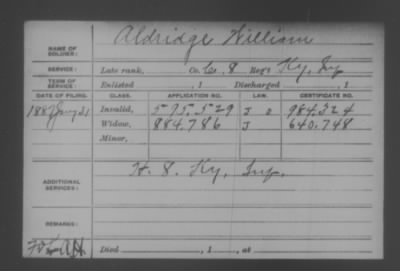 NAME OF SOLDIER: Aldridge William
SERVICE: Late rank, Co. C, 8 Reg't Ky. Inf
TERM OF SERVICE: Enlisted , 1 Discharged , 1
DATE OF FILING. CLASS. APPLICATION NO. LAW. CERTIFICATE NO.
1887 Invalid, 595.529 J O 984.324
Widow, 884.786 J 640.748
Minor,
ADDITIONAL SERVICES: H. 8. Ky. Inf.
REMARKS:
Died , 1 , at